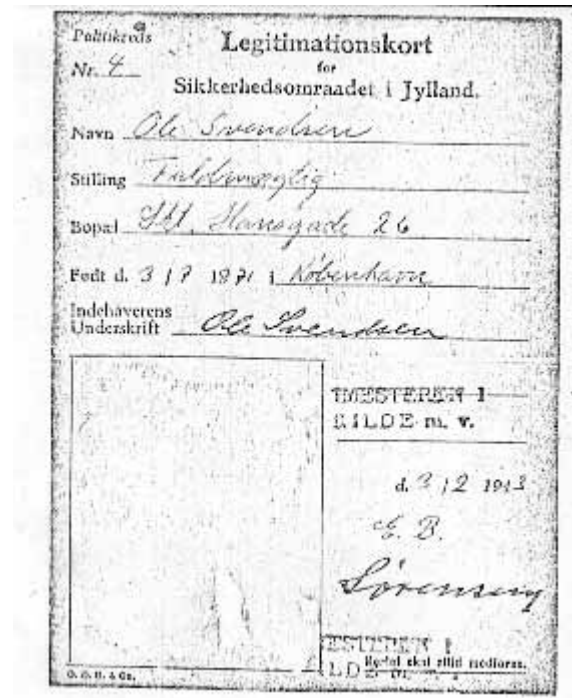 Politikreds
Nr. 4
Legitimationskort
for
Sikkerhedsomraadet i Jylland.
Navn Ole Svendsen
Stilling Fuldmægtig
Bopæl Skt. Hansgade 26
Født d. 3 / 7 1871 i København
Indehaverens
Underskrift Ole Svendsen
TMESTEREN I
KILDE m. v.
d. 3 / 2 1943
E. B.
Sörensen
ESTEREN I
Kortet skal altid medføres.
ILDE